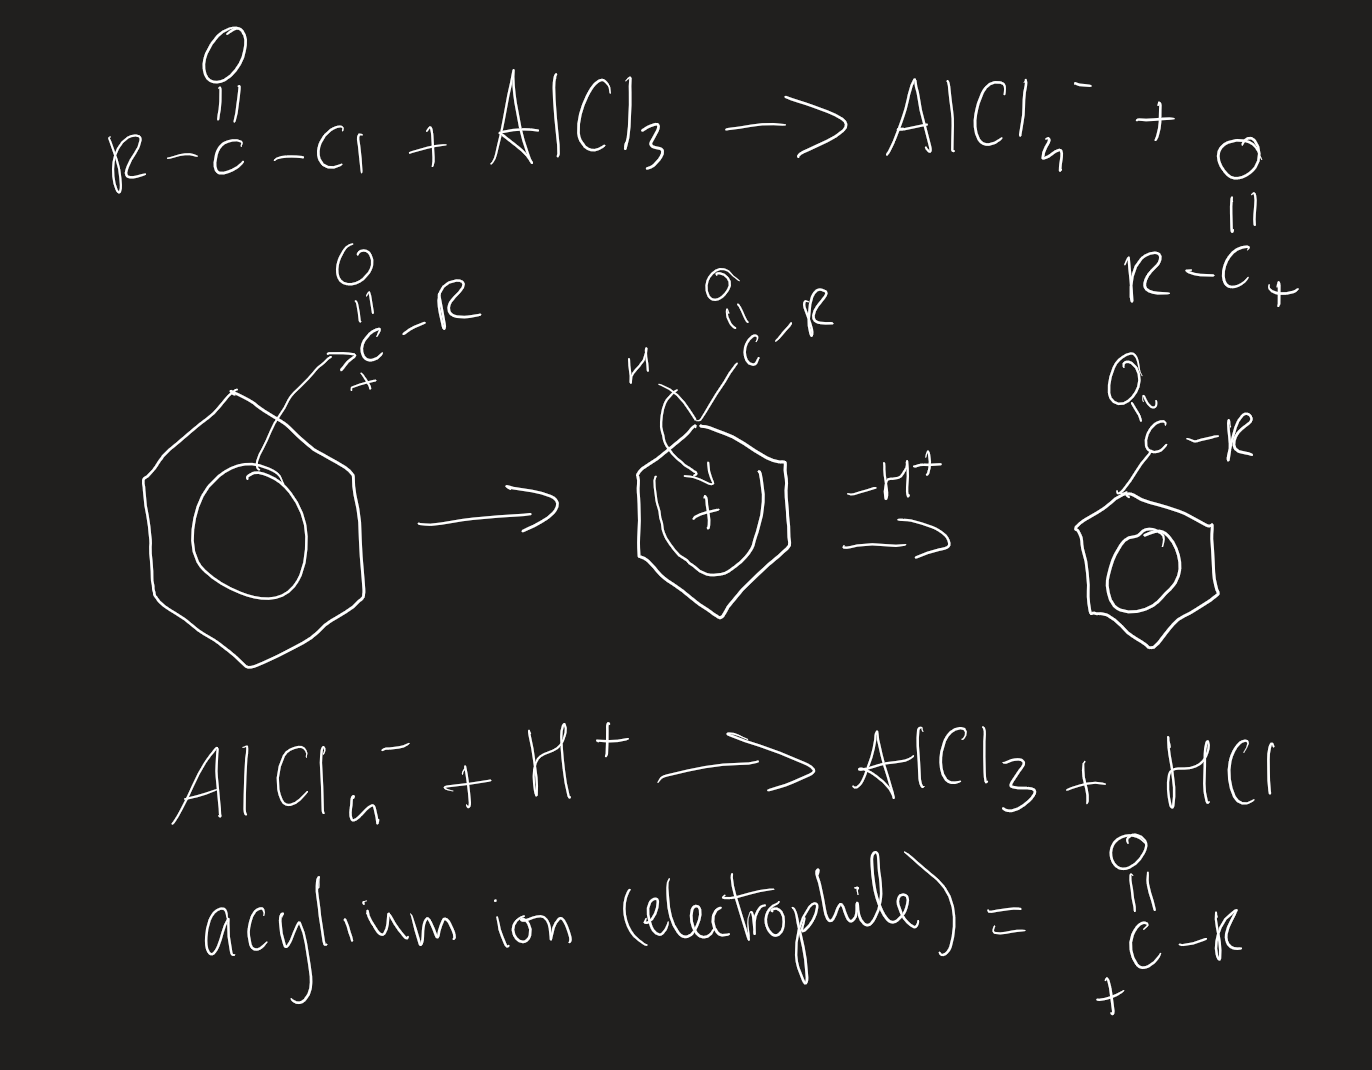 O
R-C-Cl + AlCl3 → AlCl4⁻ +
O
R-C+
O
C-R
+
O
H C-R
+
-H+
→
O
C-R
AlCl4⁻ + H+ → AlCl3 + HCl
acylium ion (electrophile) =
O
C-R
+